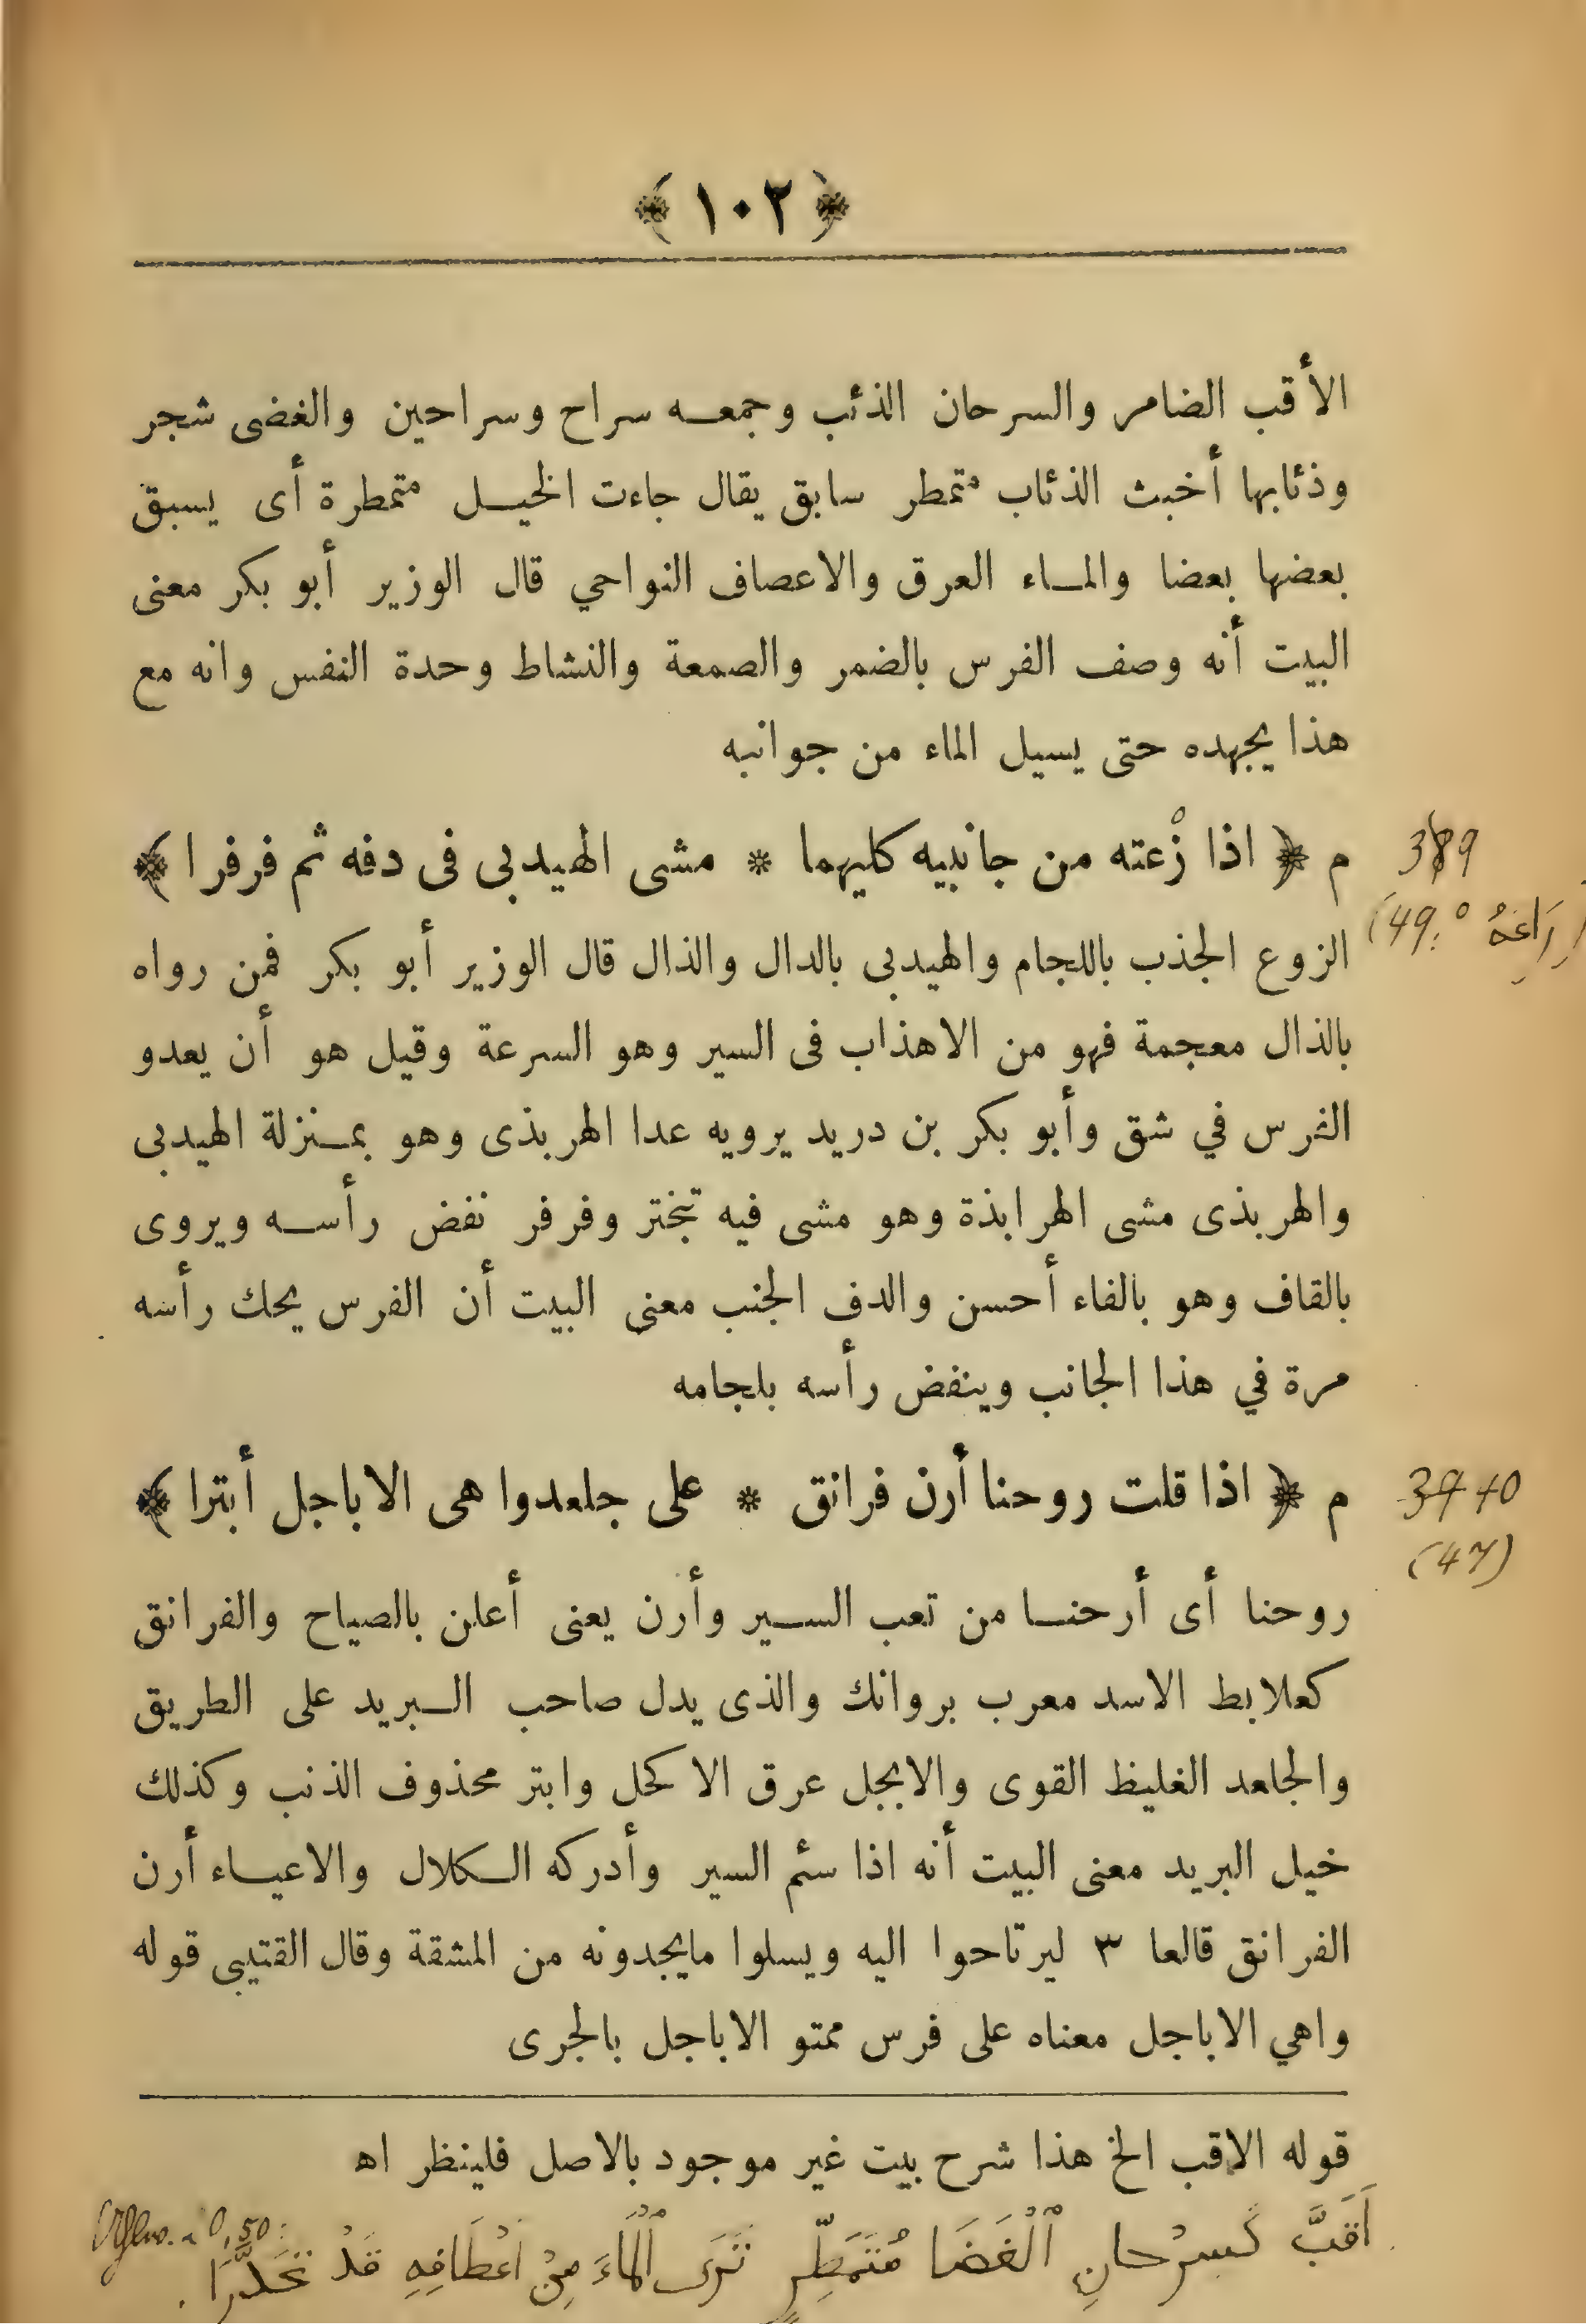 ﴿ ١٠٢ ﴾
الأقب الضامر والسرحان الذئب وجمعه سراح وسراحين والغضى شجر
وذئابها أخبث الذئاب متمطر سابق يقال جاءت الخيل متمطرة أى يسبق
بعضها بعضا والماء العرق والاعصاف النواحي قال الوزير أبو بكر معنى
البيت أنه وصف الفرس بالضمر والصمعة والنشاط وحدة النفس وانه مع
هذا يجهده حتى يسيل الماء من جوانبه
م ﴿ اذا زْعته من جانبيه كليهما * مشى الهيدبى فى دفه ثم فرفرا ﴾ 389
(49. رَاعَهُ
الزوع الجذب باللجام والهيدبى بالدال والذال قال الوزير أبو بكر فمن رواه
بالذال معجمة فهو من الاهذاب فى السير وهو السرعة وقيل هو أن يعدو
الفرس في شق وأبو بكر بن دريد يرويه عدا الهربذى وهو بمنزلة الهيدبى
والهربذى مشى الهرابذة وهو مشى فيه تبختر وفرفر نفض رأسه ويروى
بالقاف وهو بالفاء أحسن والدف الجنب معنى البيت أن الفرس يحك رأسه
مرة في هذا الجانب وينفض رأسه بلجامه
م ﴿ اذا قلت روحنا أرن فرانق * على جلعدوا هى الاباجل أبترا ﴾ 40
(47)
روحنا أى أرحنا من تعب السير وأرن يعنى أعلن بالصياح والفرانق
كعلابط الاسد معرب بروانك والذى يدل صاحب البريد على الطريق
والجلعد الغليظ القوى والابجل عرق الاكحل وابتر محذوف الذنب وكذلك
خيل البريد معنى البيت أنه اذا سئم السير وأدركه الكلال والاعياء أرن
الفرانق قالعا ٣ ليرتاحوا اليه ويسلوا مايجدونه من المشقة وقال القتيبى قوله
واهي الاباجل معناه على فرس ممتو الاباجل بالجرى
قوله الاقب الخ هذا شرح بيت غير موجود بالاصل فلينظر اه
Ahlw. 50:
أَقَبَّ كَسِرْحانِ ٱلْغَضَا مُتَمَطِّرٍ تَرَى ٱلْمَاءَ مِنْ أَعْطَافِهِ قَدْ تَحَدَّرَا.